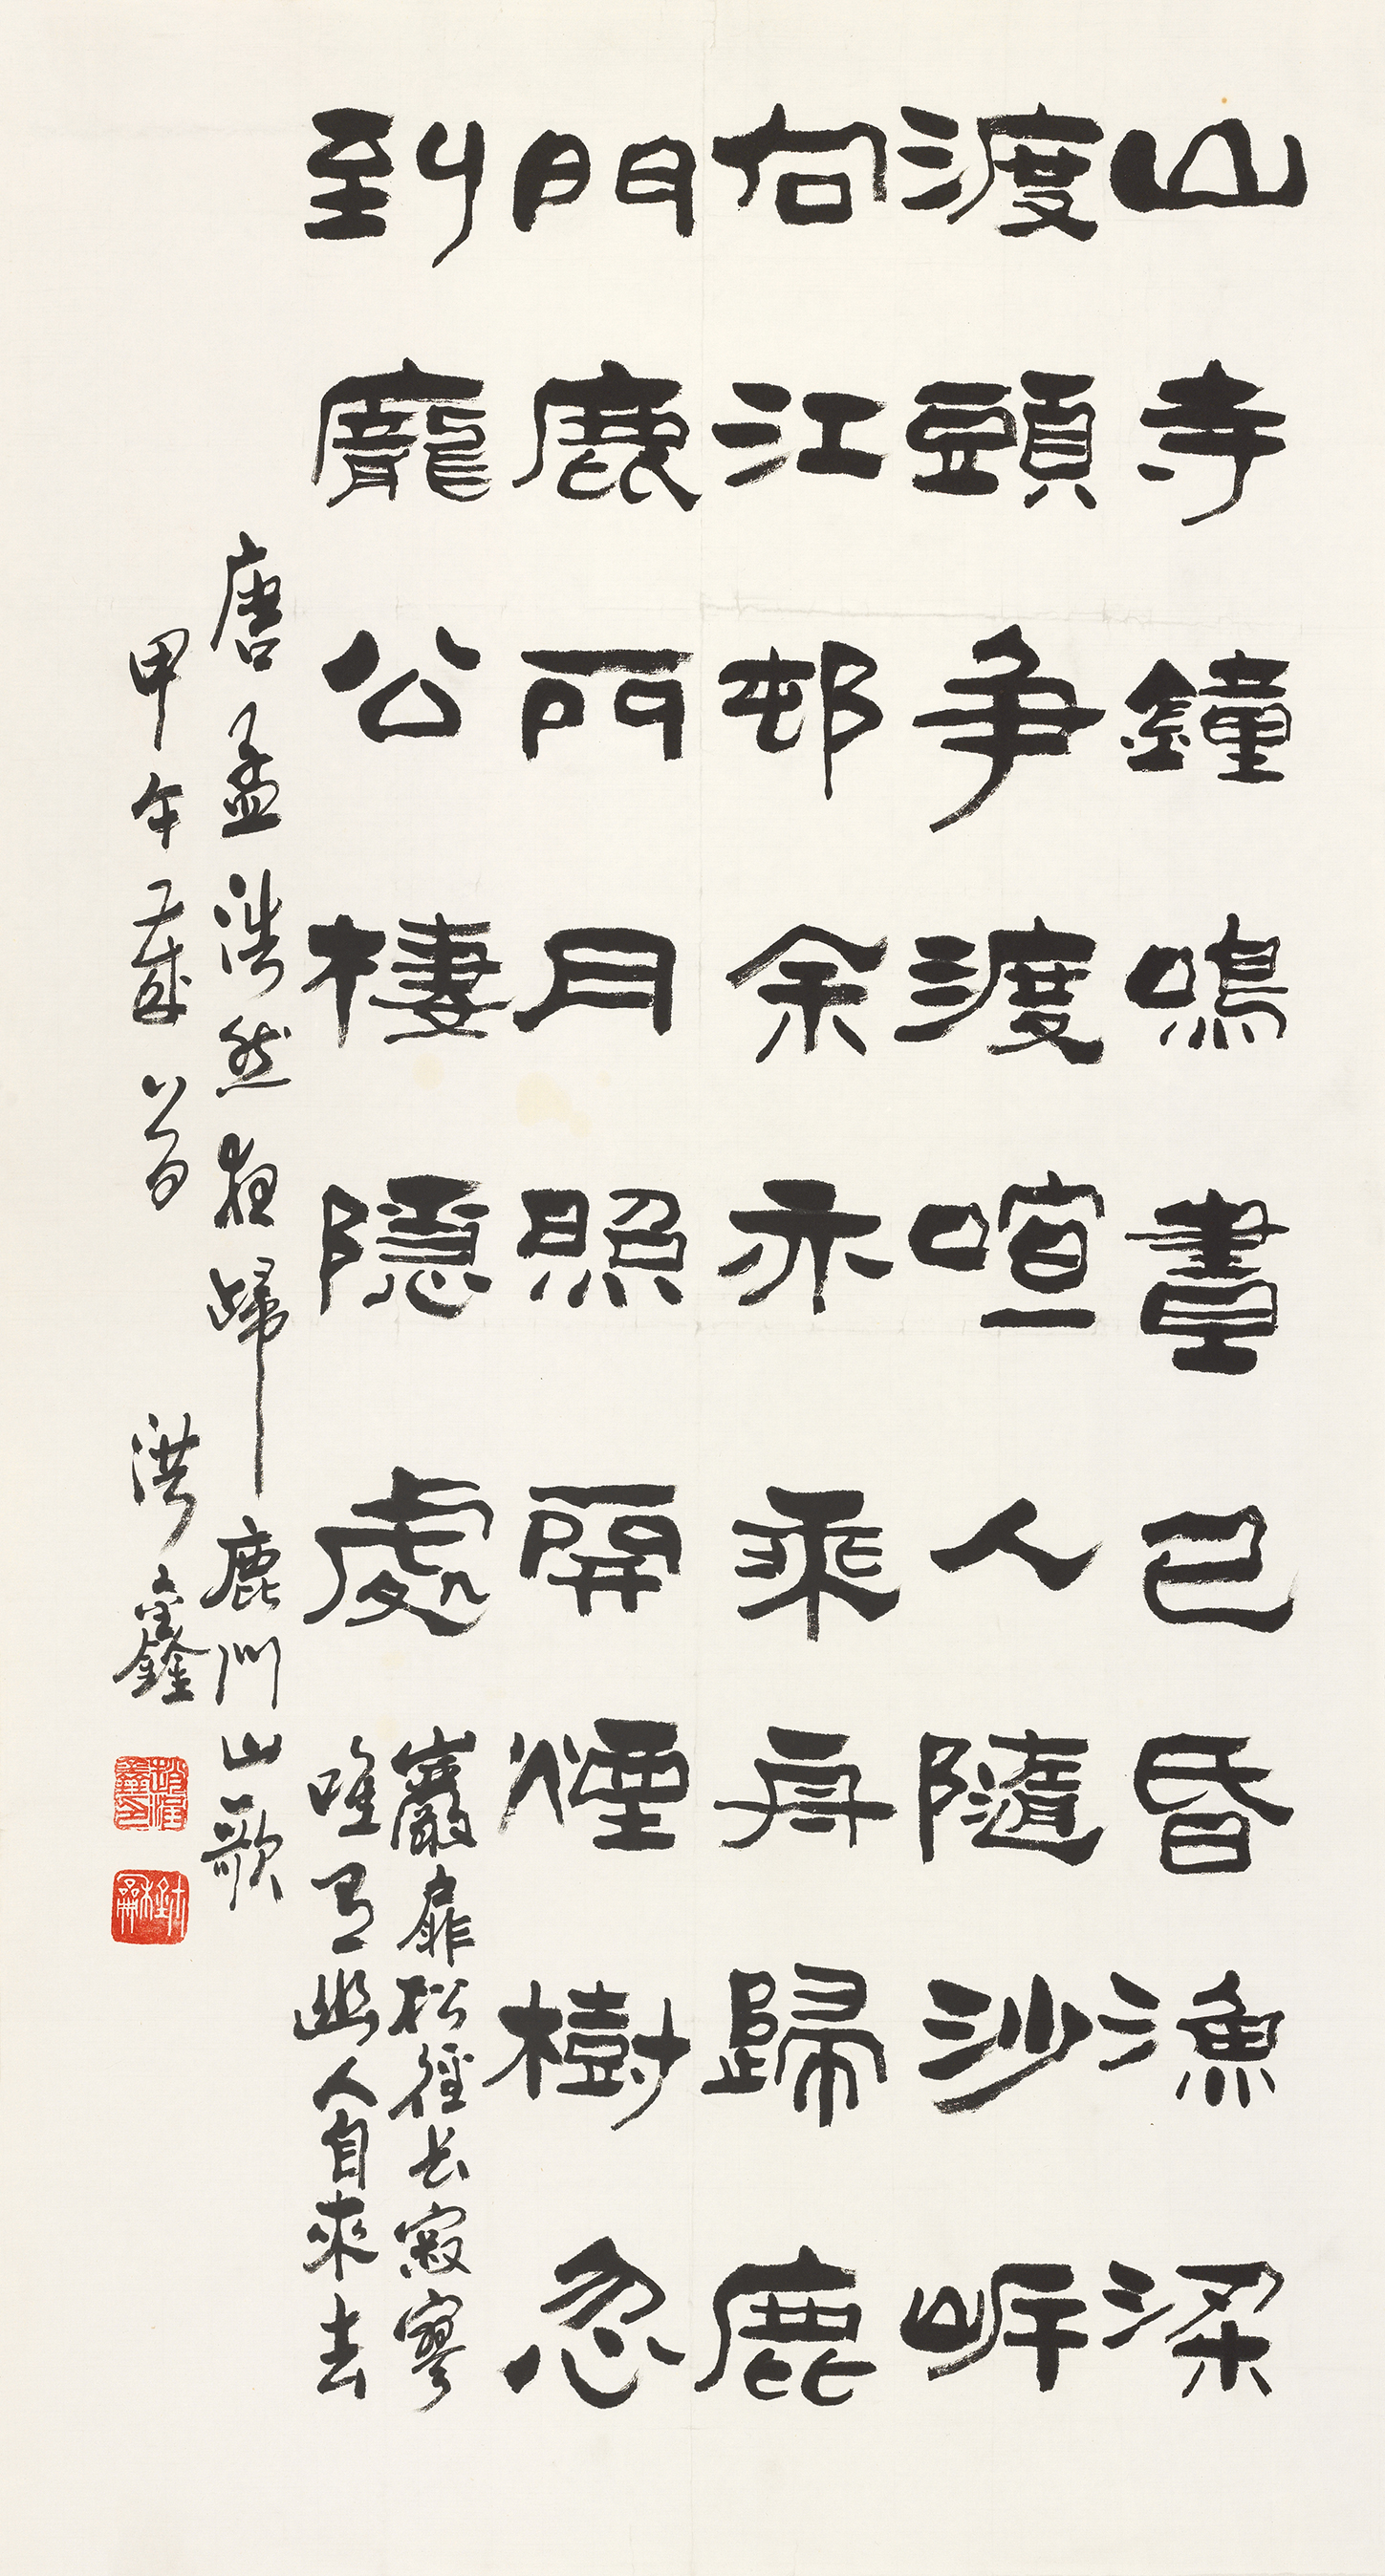 山寺鐘鳴晝已昏漁梁
渡頭爭渡喧人隨沙岸
向江邨余亦乘舟歸鹿
門鹿門月照開煙樹忽
到龐公棲隱處
巖扉松徑長寂寥
唯有幽人自來去
唐孟浩然夜歸鹿門山歌
甲午歲首 洪鑫
趙洪鑫印